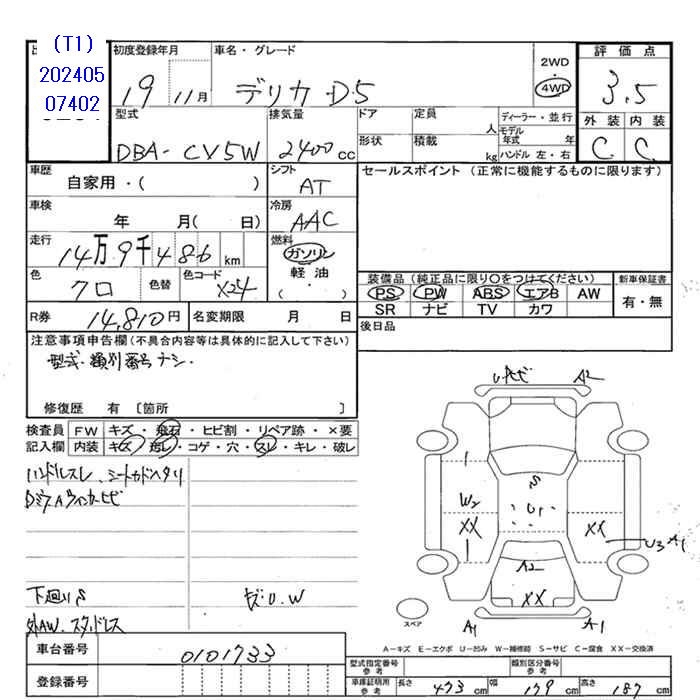 (T1)
202405
07402
初度登録年月
車名・グレード
19 11月
デリカ・D5
2WD
4WD
評価点
3.5
外装 内装
C C
型式
DBA-CV5W
排気量
2400cc
ドア
定員
人
ディーラー・並行
モデル年式 年
形状
積載
kg
ハンドル 左・右
車歴
自家用・( )
シフト
AT
セールスポイント (正常に機能するものに限ります)
車検
年 月( 日)
冷房
AAC
走行
14万9千486km
燃料
ガソリン
軽油
(・)
色
クロ
色替
色コード
X24
装備品 (純正品に限り○をつけてください)
PS PW ABS エアB AW
SR ナビ TV カワ
新車保証書
有・無
R券
14,810円
名変期限 月 日
後日品
注意事項申告欄(不具合内容等は具体的に記入して下さい)
型式・類別番号ナシ.
修復歴 有 [箇所 ]
検査員
記入欄
FW キズ・飛石・ヒビ割・リペア跡・×要
内装 キズ・汚レ・コゲ・穴・スレ・キレ・破レ
ハンドルスレ、シートカドヘタリ
Dミラーウィンカーヒビ
下廻りS
外AW.スタッドレス
U.W
A2
S
U1
W2
XX
XX
U3 A1
A2
XX
A1
A1
スペア
A-キズ E-エクボ U-凹み W-補修跡 S-サビ C-腐食 XX-交換済
車台番号
0101733
登録番号
型式指定番号
参考
類別区分番号
参考
車庫証明用
参考
長さ 473cm
幅 179cm
高さ 187cm